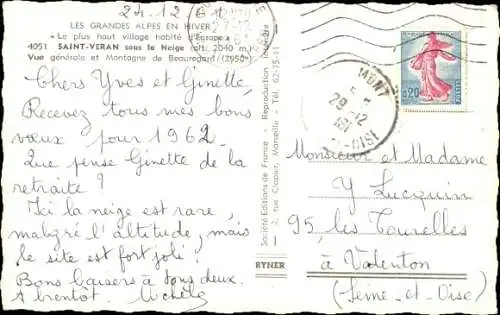 24.12.61
LES GRANDES ALPES EN HIVER
« Le plus haut village habité d'Europe »
4051 SAINT-VERAN sous la Neige (alt. 2040 m.)
Vue générale et Montagne de Beauregard (2950m)
Chers Yves et Ginette,
Recevez tous mes bons
vœux pour 1962.
Que pense Ginette de la
retraite ?
Ici la neige est rare,
malgré l'altitude, mais
le site est fort joli !
Bons baisers à tous deux.
A bientôt. Michèle
Société Editions de France - Reproduction interdite
2, rue Clapier, Marseille - Tél. 62-75-11
RYNER
29-12
0,20
Monsieur et Madame
Y Lucquin
95, les Tourelles
à Valenton
(Seine-et-Oise)